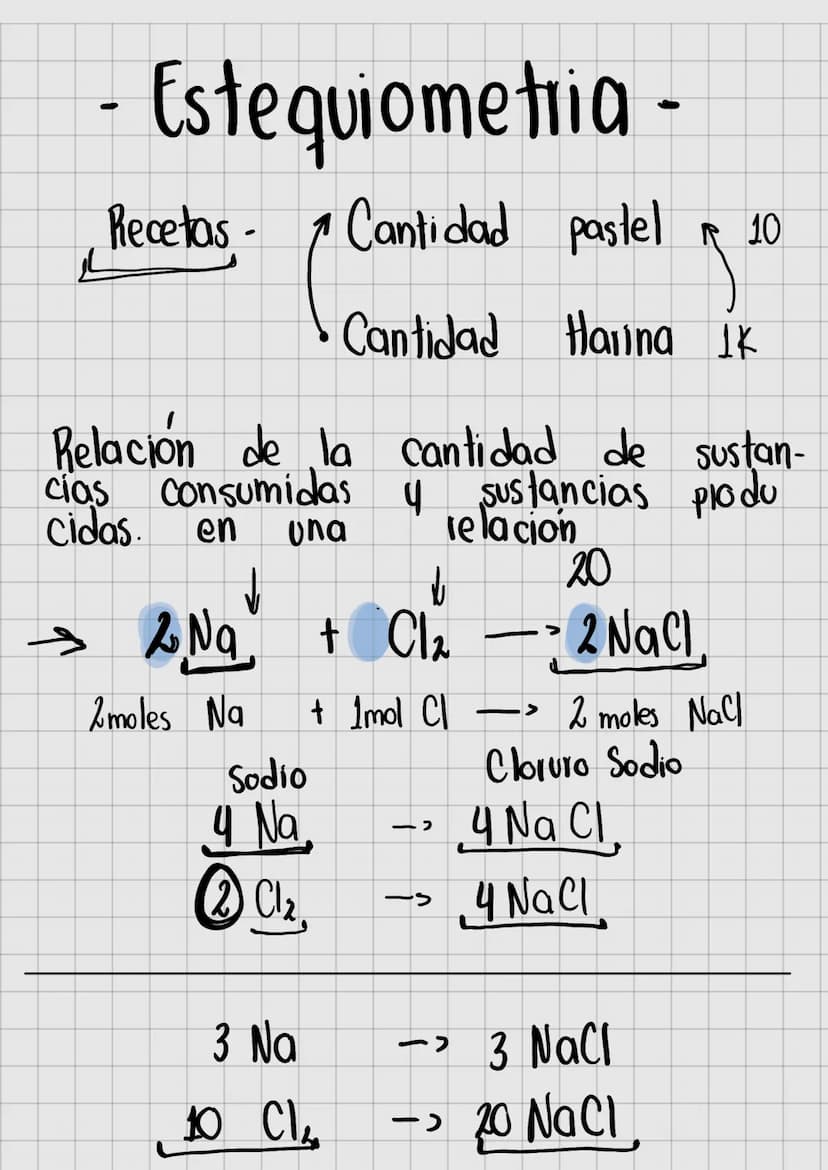 - Estequiometria -
Recetas - Cantidad pastel 10
Cantidad Harina 1K
Relación de la cantidad de sustan-
cias consumidas y sustancias produ
cidas. en una relación
20
2 Na + Cl2 → 2 NaCl
2 moles Na + 1mol Cl → 2 moles NaCl
Sodio Cloruro Sodio
4 Na → 4 NaCl
2 Cl2 → 4 NaCl
3 Na → 3 NaCl
10 Cl2 → 20 NaCl